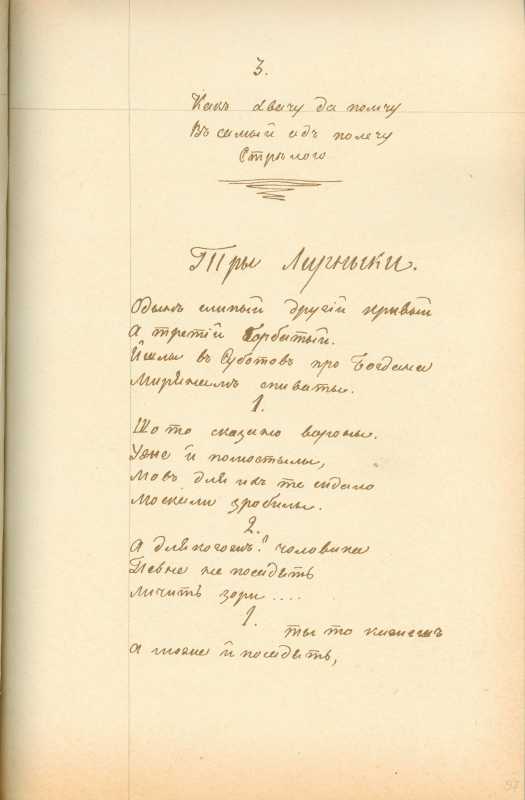 3.
Какъ хвачу да помчу
Въ самый адъ полечу
Стрѣлою
Тры Лирныки.
Одынъ слипый другій крывый
А третій Горбатый.
Йшлы въ Суботовъ про Богдана
Мирянамъ спиваты.
1.
Що то сказано вороны.
Уже й помостылы,
Мовъ для ихъ те сидало
Москали зробылы.
2.
А для когожъ? чоловика
Певне не посадять
Личить зори ....
1.
ты то кажешъ
А може й посадять,
97